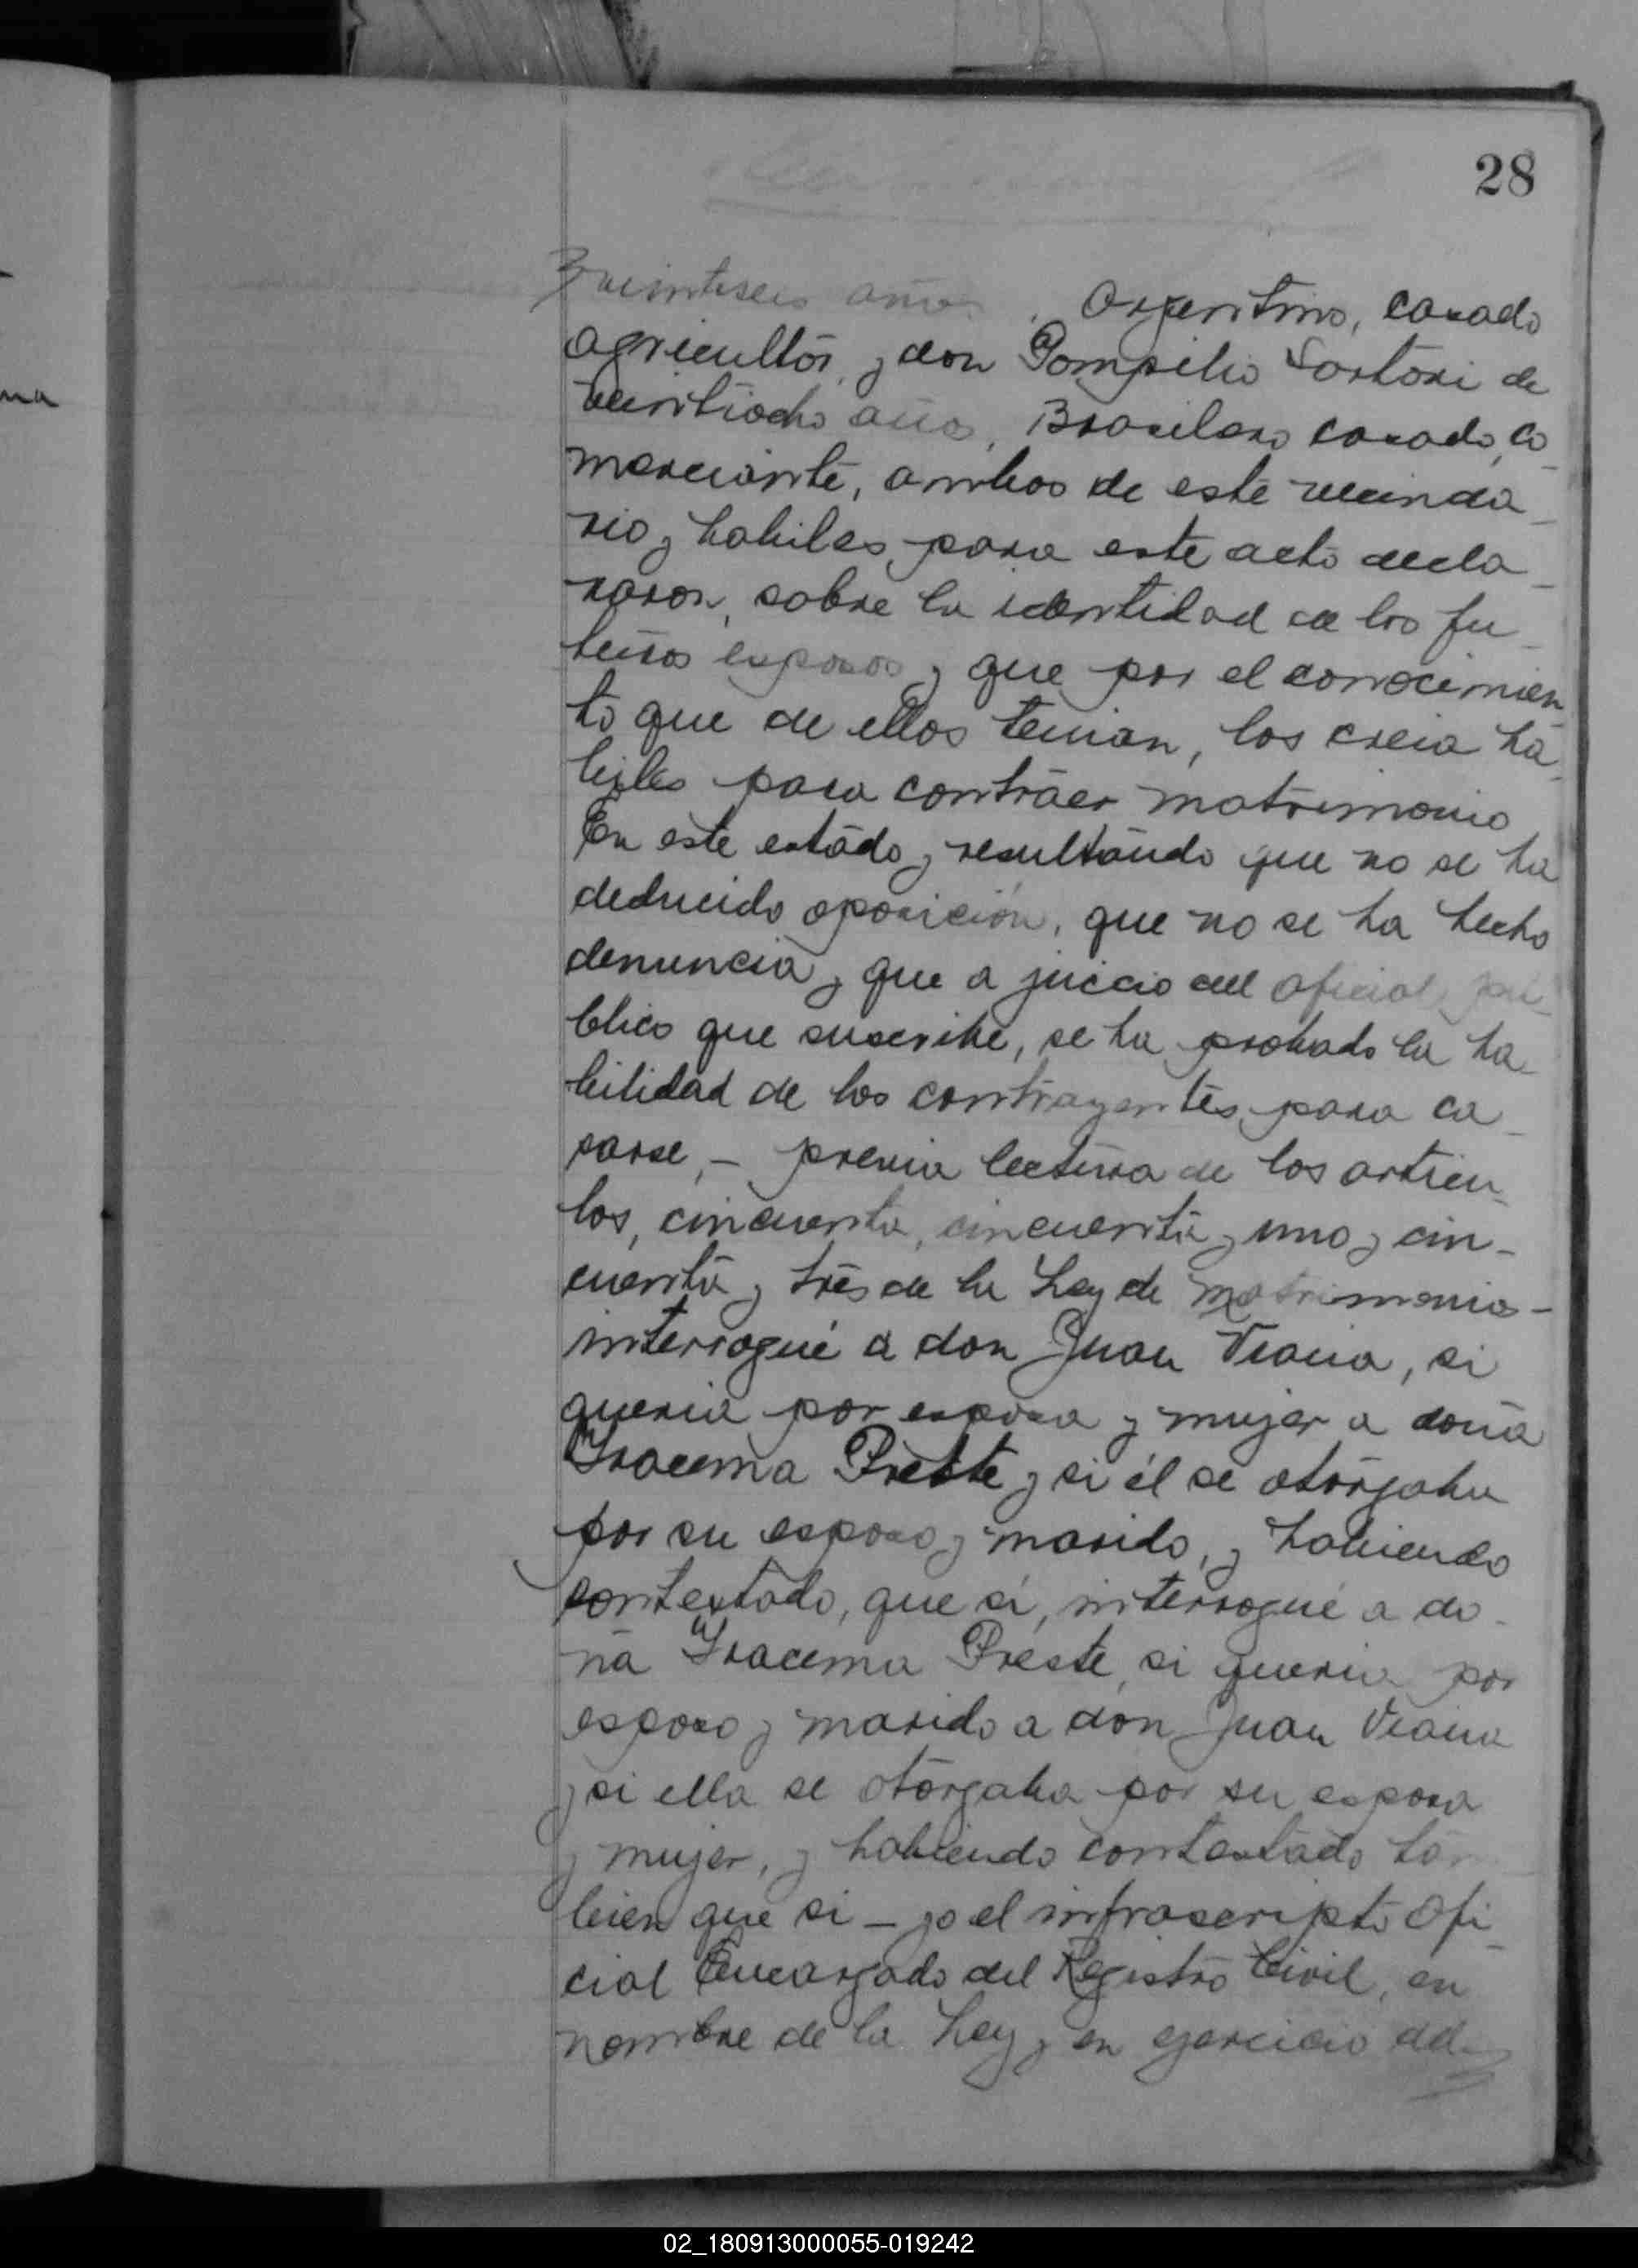 28
años, Argentino, casado
agricultor, y don Pompilio Sartori de
veintiocho años, Brasilero casado, co_
merciante, ambos de este vecinda_
rio y habiles para este acto decla_
raron, sobre la identidad de los fu_
turos esposos y que por el conocimien_
to que de ellos tenian, los creia há_
biles para contraer matrimonio
En este estado y resultando que no se ha
deducido oposición, que no se ha hecho
denuncia y que a juicio del oficial pú_
blico que suscribe, se ha probado la ha_
bilidad de los contrayentes para ca_
sarse, - previa lectura de los articu_
los, cincuenta, cincuenta y uno y cin-
cuenta y tres de la Ley de Matrimonio -
interrogué a don Juan Viana, si
queria por esposa y mujer a doña
Iracema Preste y si él se otorgaba
por su esposo y marido, y habiendo
contestado, que sí, interrogué a do_
ña Iracema Preste, si queria por
esposo y marido a don Juan Viana
y si ella se otorgaba por su esposa
y mujer, y habiendo contestado tam
bien que si - yo el infrascripto Ofi_
cial Encargado del Registro Civil, en
nombre de la Ley y en ejercicio del
na
02_180913000055-019242